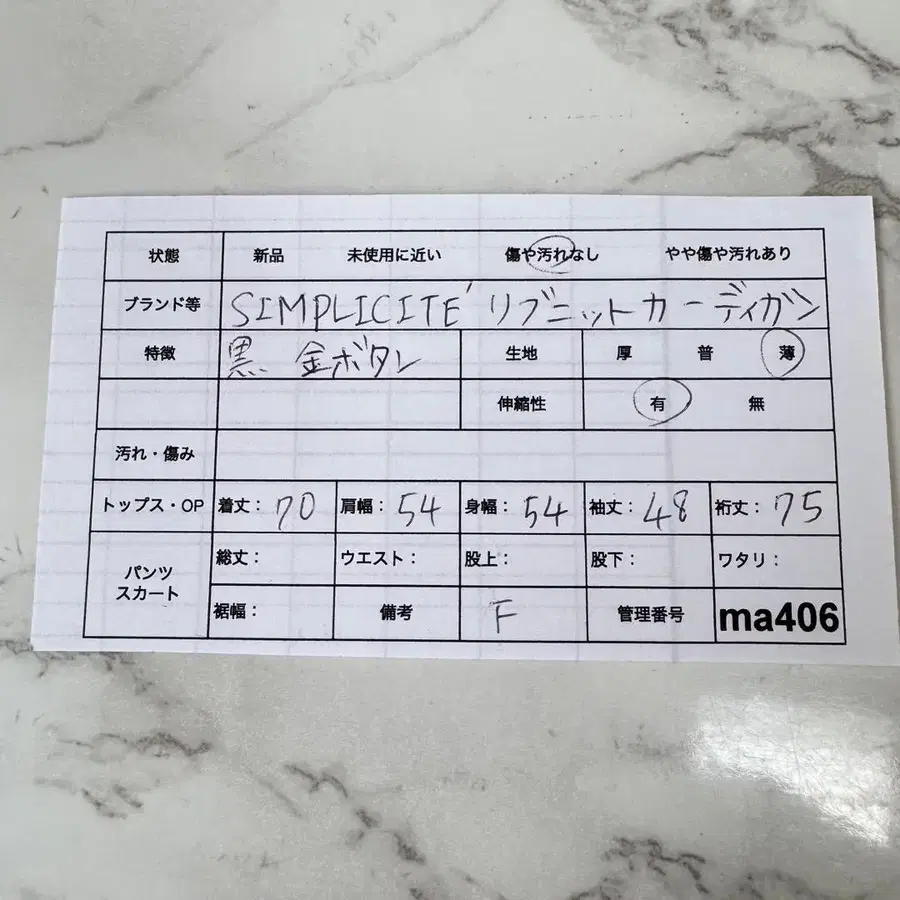 状態 新品 未使用に近い 傷や汚れなし やや傷や汚れあり
ブランド等 SIMPLICITÉ リブニットカーディガン
特徴 黒 金ボタン 生地 厚 普 薄
伸縮性 有 無
汚れ・傷み
トップス・OP 着丈：70 肩幅：54 身幅：54 袖丈：48 裄丈：75
パンツ スカート 総丈： ウエスト： 股上： 股下： ワタリ：
裾幅： 備考 F 管理番号 ma406